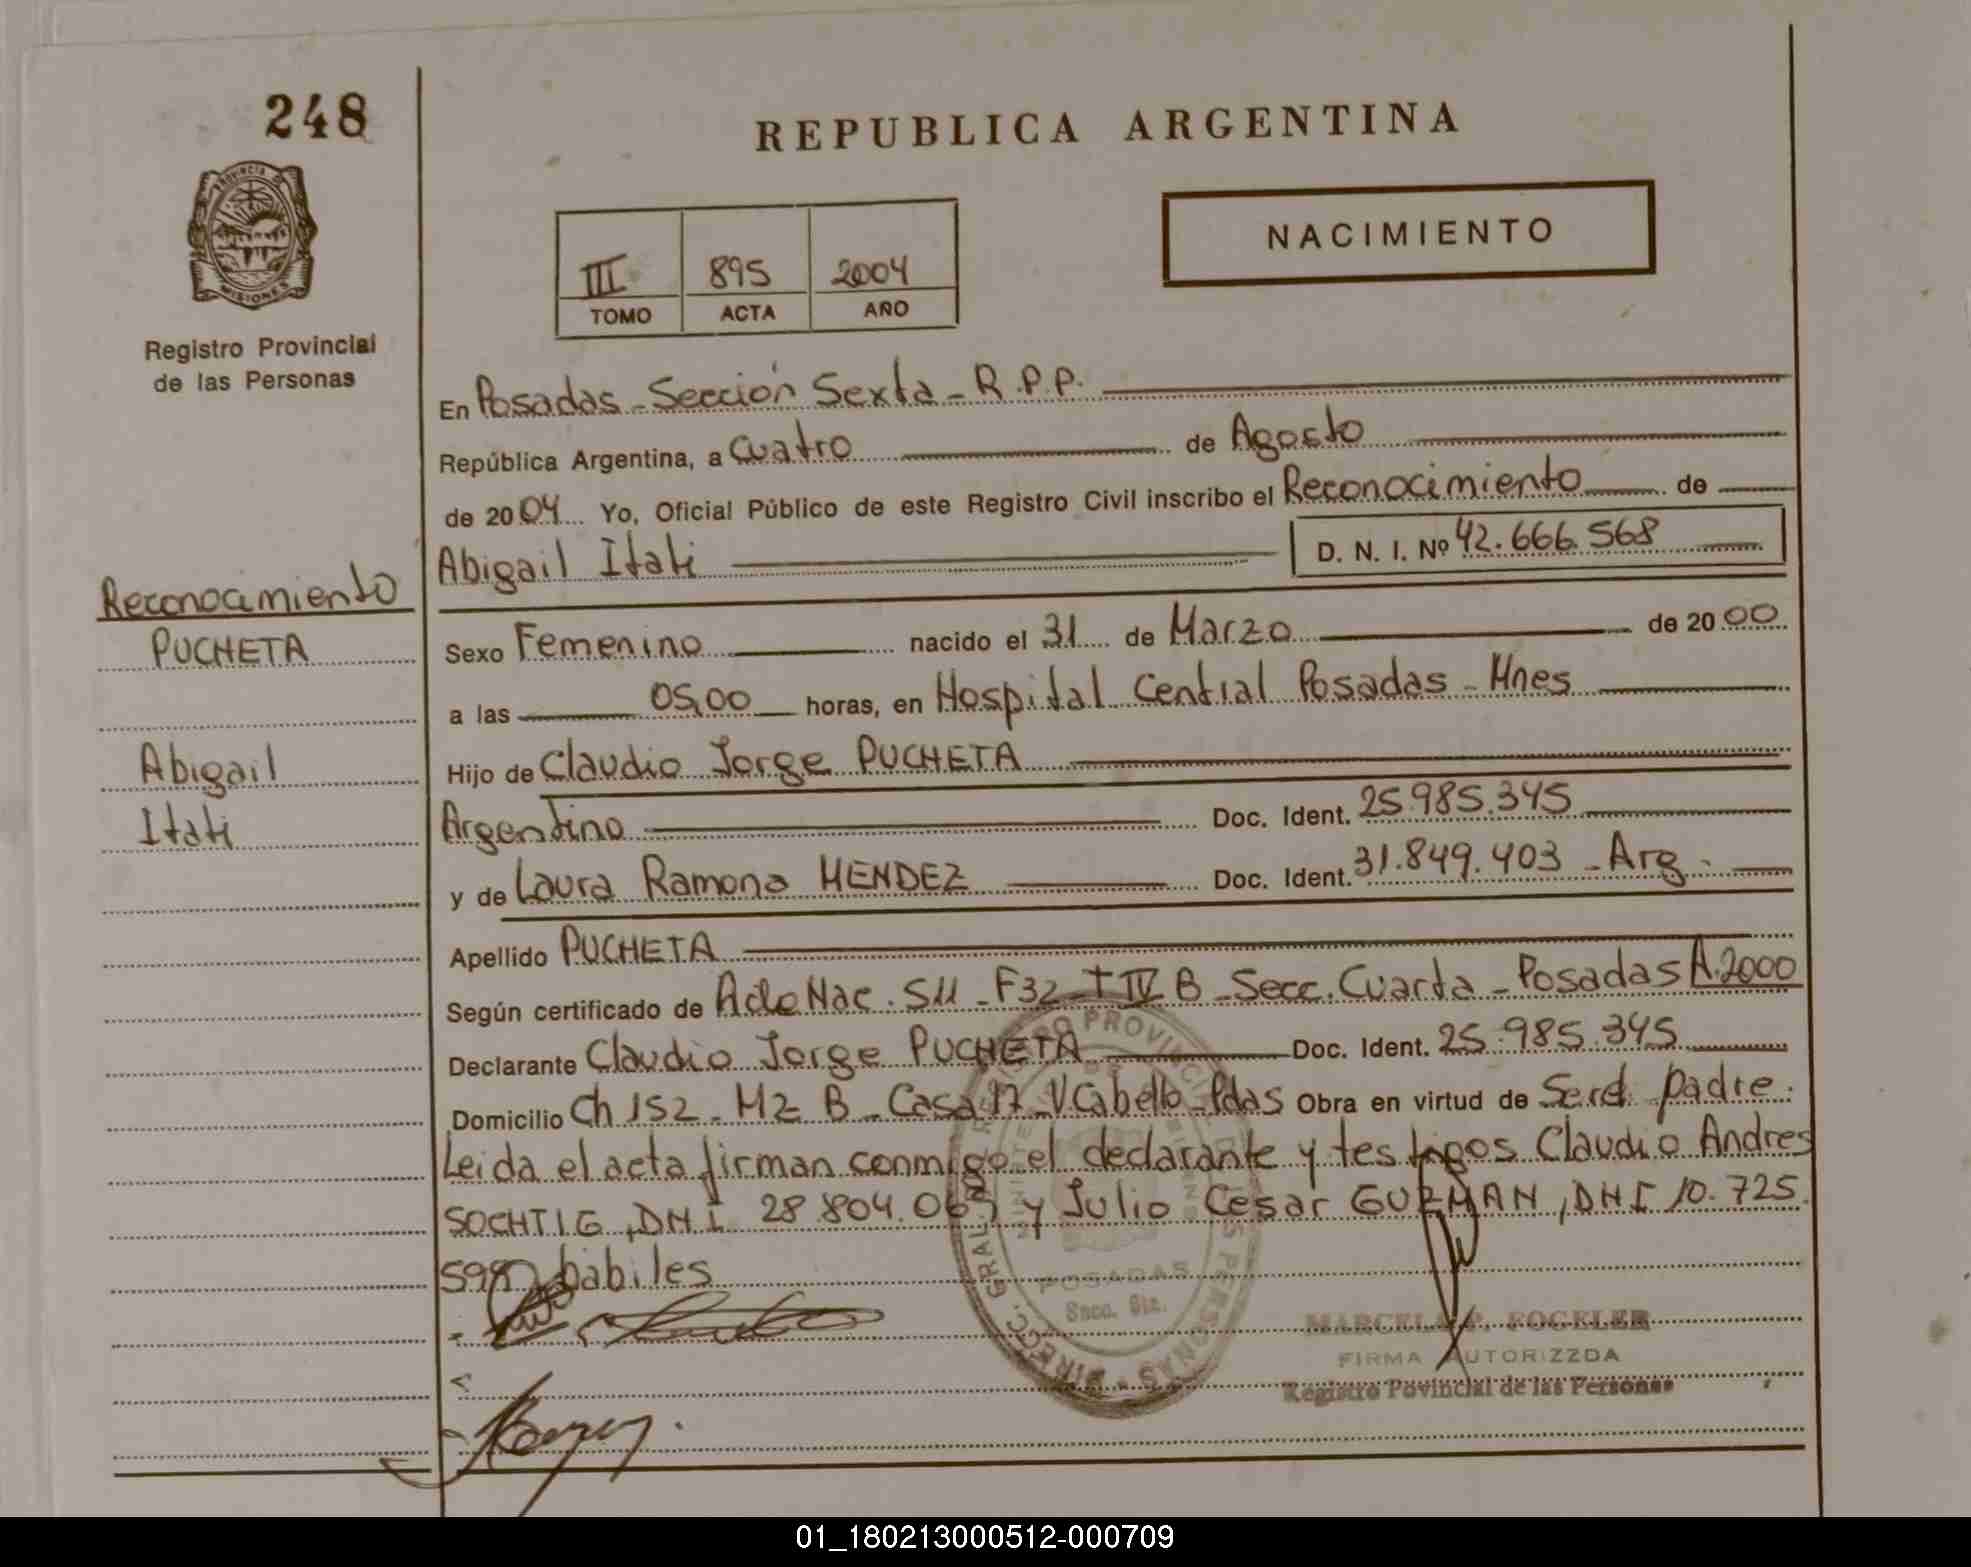 248
REPUBLICA ARGENTINA
NACIMIENTO
PROVINCIA DE
MISIONES
III 895 2004
TOMO ACTA AÑO
Registro Provincial
de las Personas
En Posadas - Sección Sexta - R.P.P.
República Argentina, a Cuatro de Agosto
de 2004 Yo, Oficial Público de este Registro Civil inscribo el Reconocimiento de
Abigail Itati D. N. I. Nº 42.666.568
Reconocimiento
PUCHETA
Abigail
Itati
Sexo Femenino nacido el 31 de Marzo de 2000
a las 05,00 horas, en Hospital Central Posadas - Mnes
Hijo de Claudio Jorge PUCHETA
Argentino Doc. Ident. 25.985.345
y de Laura Ramona MENDEZ Doc. Ident. 31.849.403 - Arg.
Apellido PUCHETA
Según certificado de Acta Nac. 511 - F32 - T IV B - Secc. Cuarta - Posadas A.2000
Declarante Claudio Jorge PUCHETA Doc. Ident. 25.985.345
Domicilio Ch 152 - Mz B - Casa 17 - V.Cabello - Pdas Obra en virtud de Ser el padre.
Leida el acta firman conmigo el declarante y testigos Claudio Andres
SOCHTIG, DNI 28.804.065 y Julio Cesar GUZMAN, DNI 10.725.
hábiles
POSADAS
Secc. 6ta.
MARCELA P. FOGELER
FIRMA AUTORIZZDA
Registro Povincial de las Personas
01_180213000512-000709